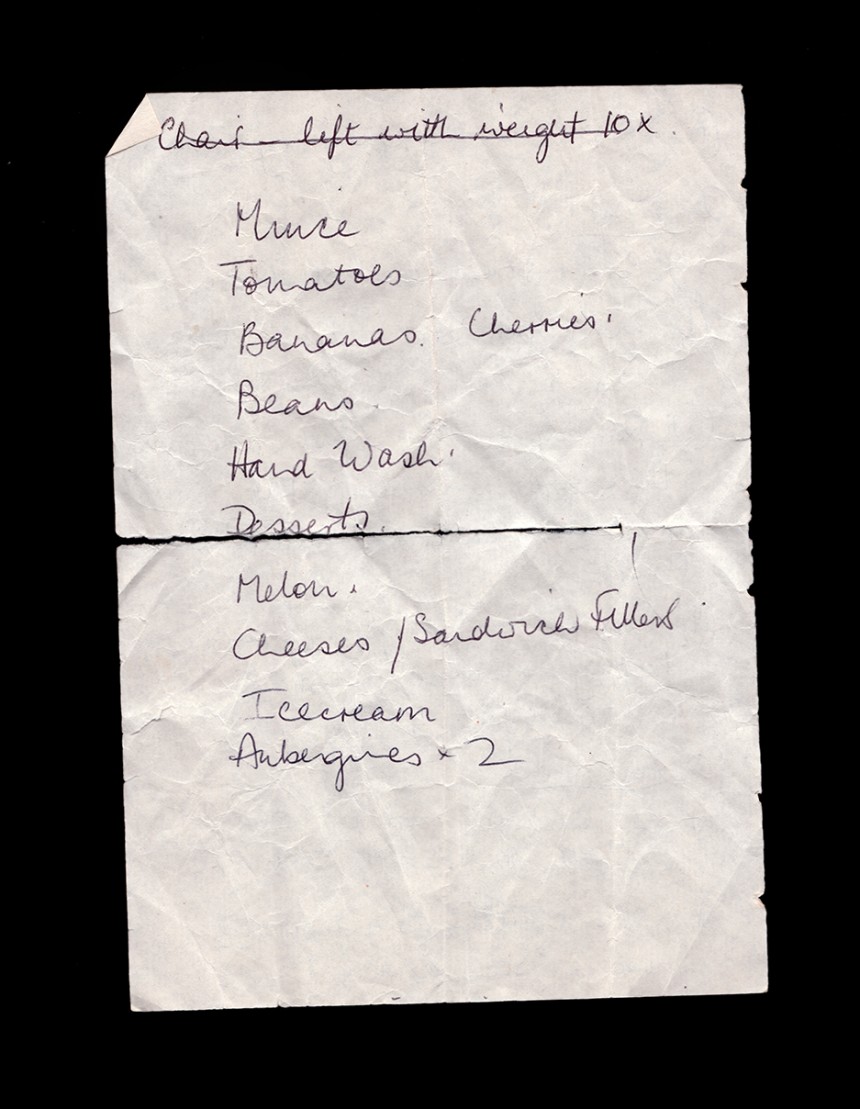 Chair - lift with weight 10x.
Mince
Tomatoes
Bananas. Cherries.
Beans.
Hand Wash.
Desserts.
Melon.
Cheeses / Sandwich Fillers.
Icecream
Aubergines x 2